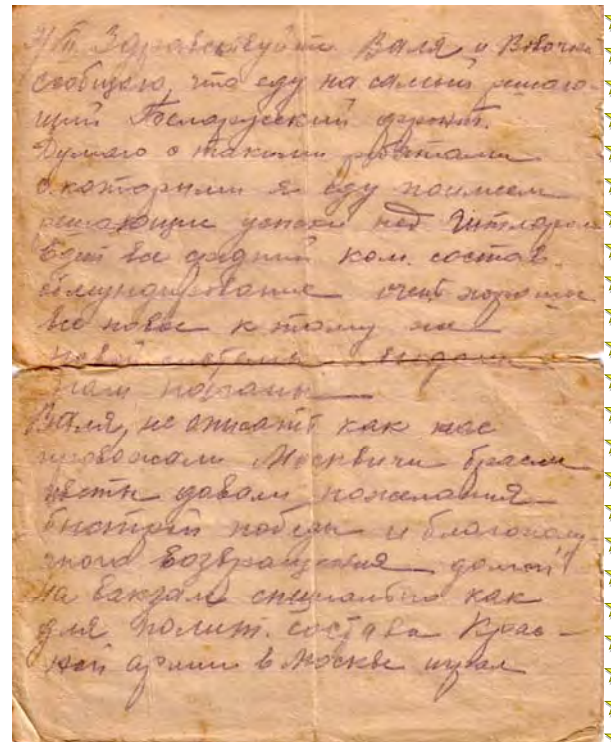 Здравствуйте Валя и Вовочка
сообщаю, что еду на самый решаю-
щий Белорусский фронт.
Думаю с такими ребятами
с которыми я еду поимеем
решающие успехи над Гитлером
Едит вс средний ком. состав.
обмундирование очень хорошее
все новое к тому же
новой системы выдали
нам погоны
Валя, не описать как нас
провожали Москвичи бросали
цветы давали пожелания
быстрей победы и благополу-
чного возвращения домой"
На вакзале специально как
для полит. состава Крас-
ной армии в Москве играл